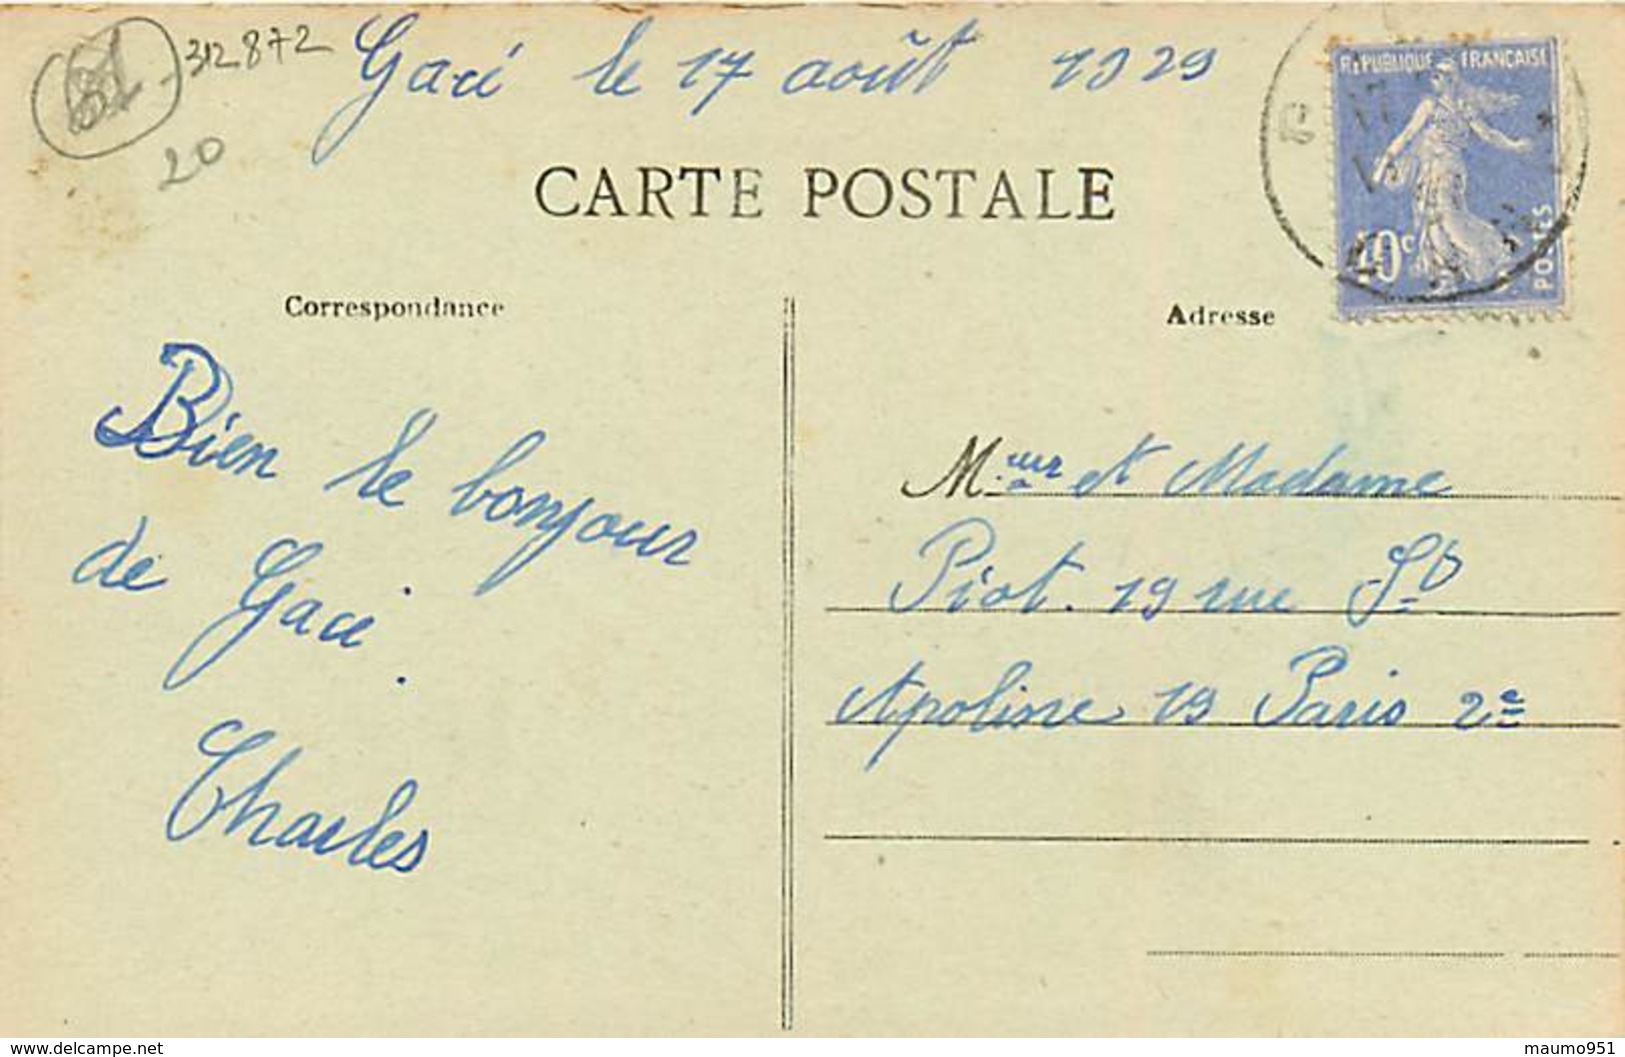 312872
20
Gacé le 17 août 1929
RÉPUBLIQUE FRANÇAISE
40c
POSTES
CARTE POSTALE
Correspondance
Adresse
Bien le bonjour
de Gacé.
Charles
M.eur et Madame
Piot. 19 rue St
Apoline 19 Paris 2e
www.delcampe.net
maumo951